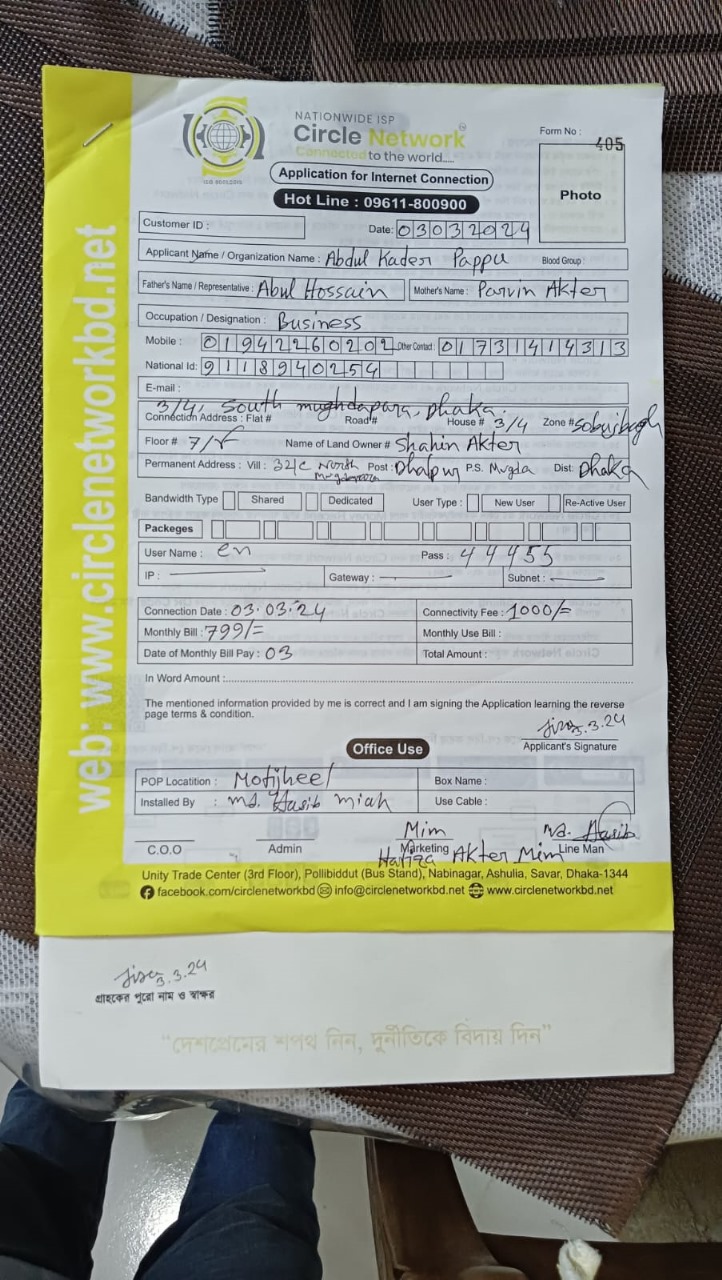 NATIONWIDE ISP
Circle Network
Connected to the world.....
ISO 9001:2015
Form No : 405
Application for Internet Connection
Photo
Hot Line : 09611-800900
Customer ID :
Date: 03032024
Applicant Name / Organization Name : Abdul Kader Pappu Blood Group :
Father's Name / Representative : Abul Hossain Mother's Name : Parvin Akter
Occupation / Designation : Business
Mobile : 01942260202 Other Contact : 01731414313
National Id: 9118940254
E-mail :
3/4, South mughdapara, Dhaka.
Connection Address : Flat # Road # House # 3/4 Zone # Sobujbagh
Floor # 7/ Name of Land Owner # Shahin Akter
Permanent Address : Vill : 32/C North Post : P.S. Mugda Dist: Dhaka
Bandwidth Type Shared Dedicated User Type : New User Re-Active User
Packeges
User Name : en Pass : 44455
IP : Gateway : Subnet :
Connection Date : 03.03.24 Connectivity Fee : 1000/=
Monthly Bill : 799/= Monthly Use Bill :
Date of Monthly Bill Pay : 03 Total Amount :
In Word Amount :
The mentioned information provided by me is correct and I am signing the Application learning the reverse
page terms & condition.
3.3.24
Applicant's Signature
Office Use
POP Locatition : Motijheel Box Name :
Installed By : md. Hasib miah Use Cable :
Mim Md. Hasib
C.O.O Admin Marketing Line Man
Hafiza Akter Mim
Unity Trade Center (3rd Floor), Pollibiddut (Bus Stand), Nabinagar, Ashulia, Savar, Dhaka-1344
facebook.com/circlenetworkbd info@circlenetworkbd.net www.circlenetworkbd.net
web: www.circlenetworkbd.net
3.3.24
গ্রাহকের পুরো নাম ও স্বাক্ষর
"দেশপ্রেমের শপথ নিন, দুর্নীতিকে বিদায় দিন"